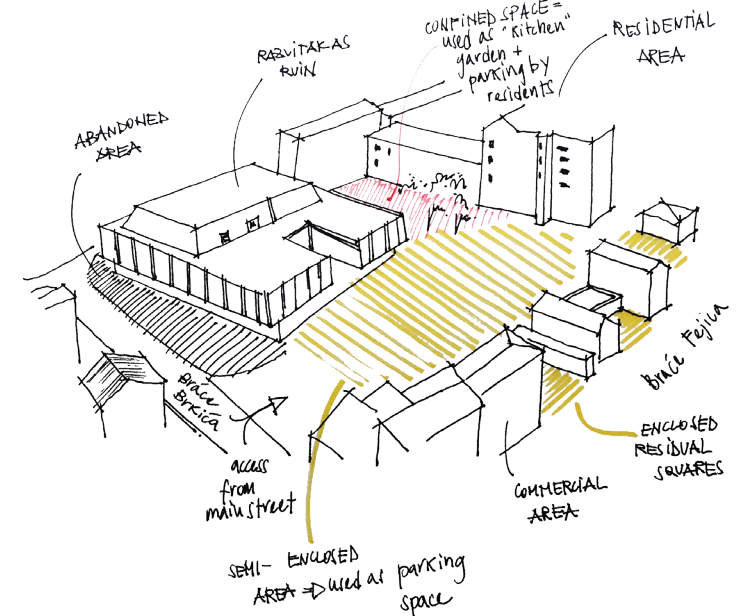 CONFINED SPACE =
used as "Kitchen"
garden +
parking by
residents
RESIDENTIAL
AREA
RAZVITAK AS
RUIN
ABANDONED
AREA
Braće Fejića
Braće
Brkića
access
from
main street
ENCLOSED
RESIDUAL
SQUARES
COMMERCIAL
AREA
SEMI- ENCLOSED
AREA ⇒ used as parking
space